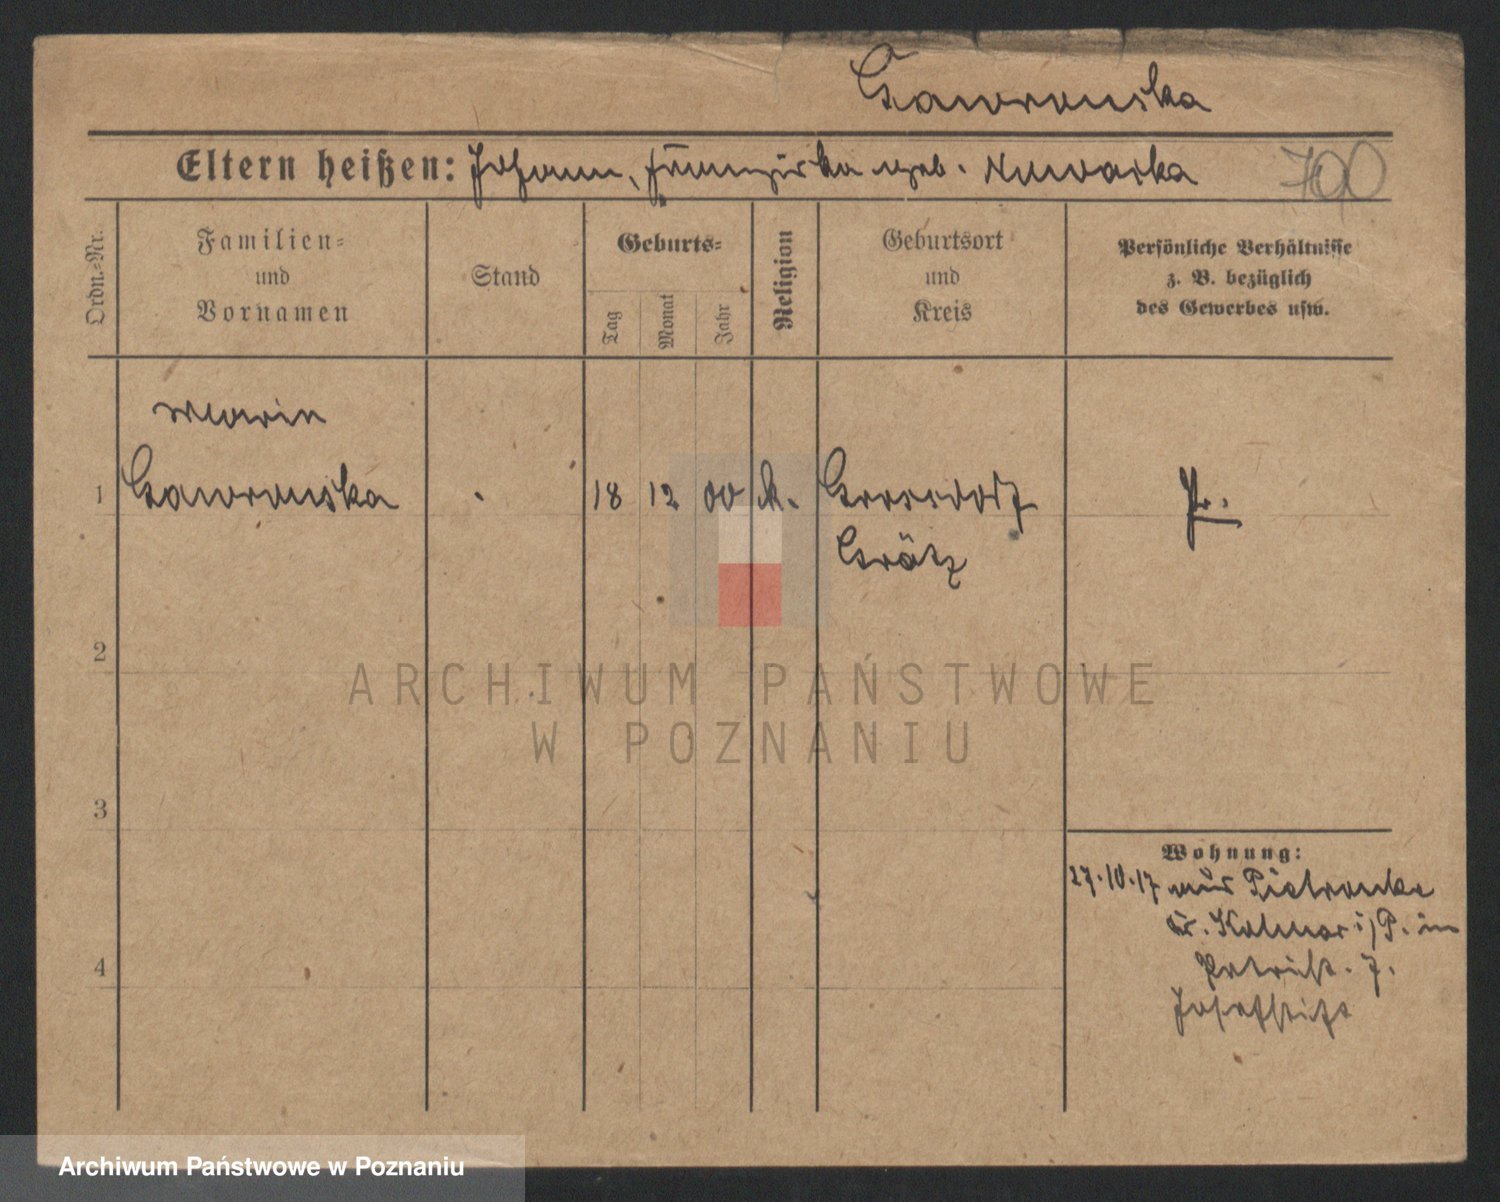 Gaworonska
Eltern heißen: Johann, Franziska geb. Nowacka 700
Ordn.-Nr.
Familien-
und
Vornamen
Stand
Geburts-
Tag
Monat
Jahr
Religion
Geburtsort
und
Kreis
Persönliche Verhältnisse
z. B. bezüglich
des Gewerbes usw.
Marie
1 Gaworonska 18 12 00 k. Grossdorf Pr.
Grätz
2
3
4
Wohnung:
27.10.17 aus Pietronke
Kr. Kolmar i/P. in
Petristr. 7.
Josefstift
ARCHIWUM PAŃSTWOWE
W POZNANIU
Archiwum Państwowe w Poznaniu